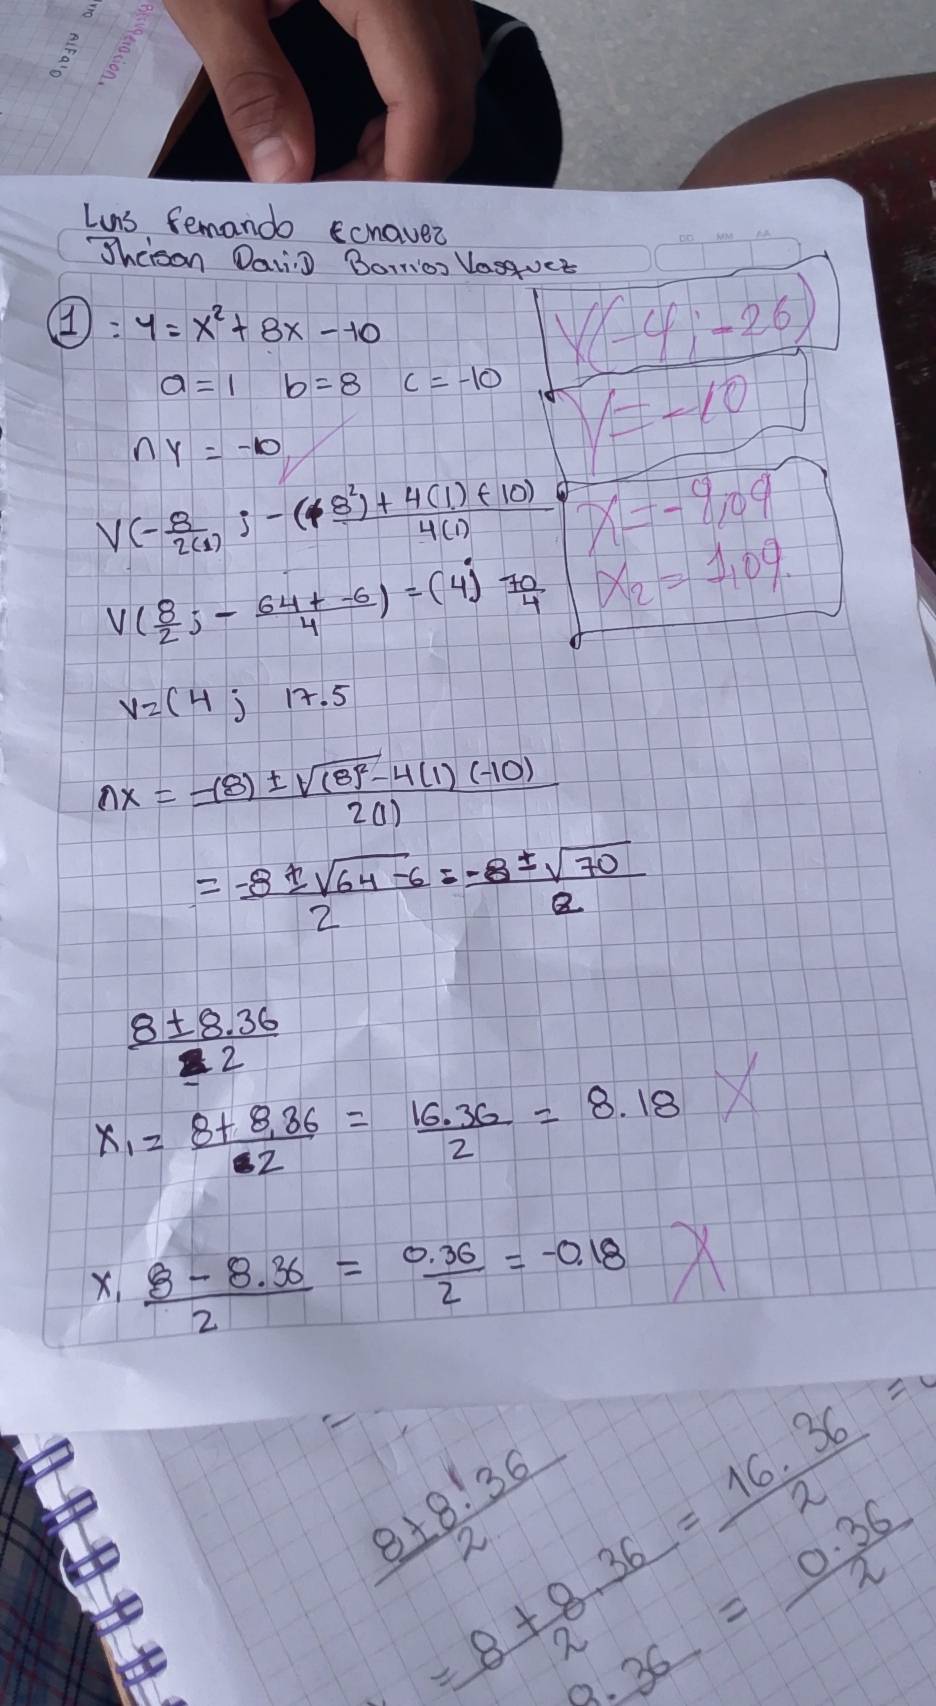 Luis Fernando Echavez
Jheison David Barrios Vasquez
DD MM AA
1 : y = x² + 8x - 10
a = 1 b = 8 c = -10
ny = -10
V(-8/2(1) ; -(8²) + 4(1)(-10)/4(1)
V(8/2 ; - 64 + -6/4) = (4 ; 70/4
V = (4 ; 17.5
nx = -(8) ± √(8)² - 4(1) (-10) / 2(1)
= -8 ± √64 - 6 / 2 = -8 ± √70 / 2
8 ± 8.36 / 2
x₁ = 8 + 8.36 / 2 = 16.36 / 2 = 8.18 X
x₁ 8 - 8.36 / 2 = 0.36 / 2 = -0.18 X
V(-4 ; -26)
Y = -10
X = -9,09
x₂ = 1,09.
8 + 8.36 / 2
= 8 + 8.36 / 2 = 16.36 / 2 =
8.36 = 0.36 / 2